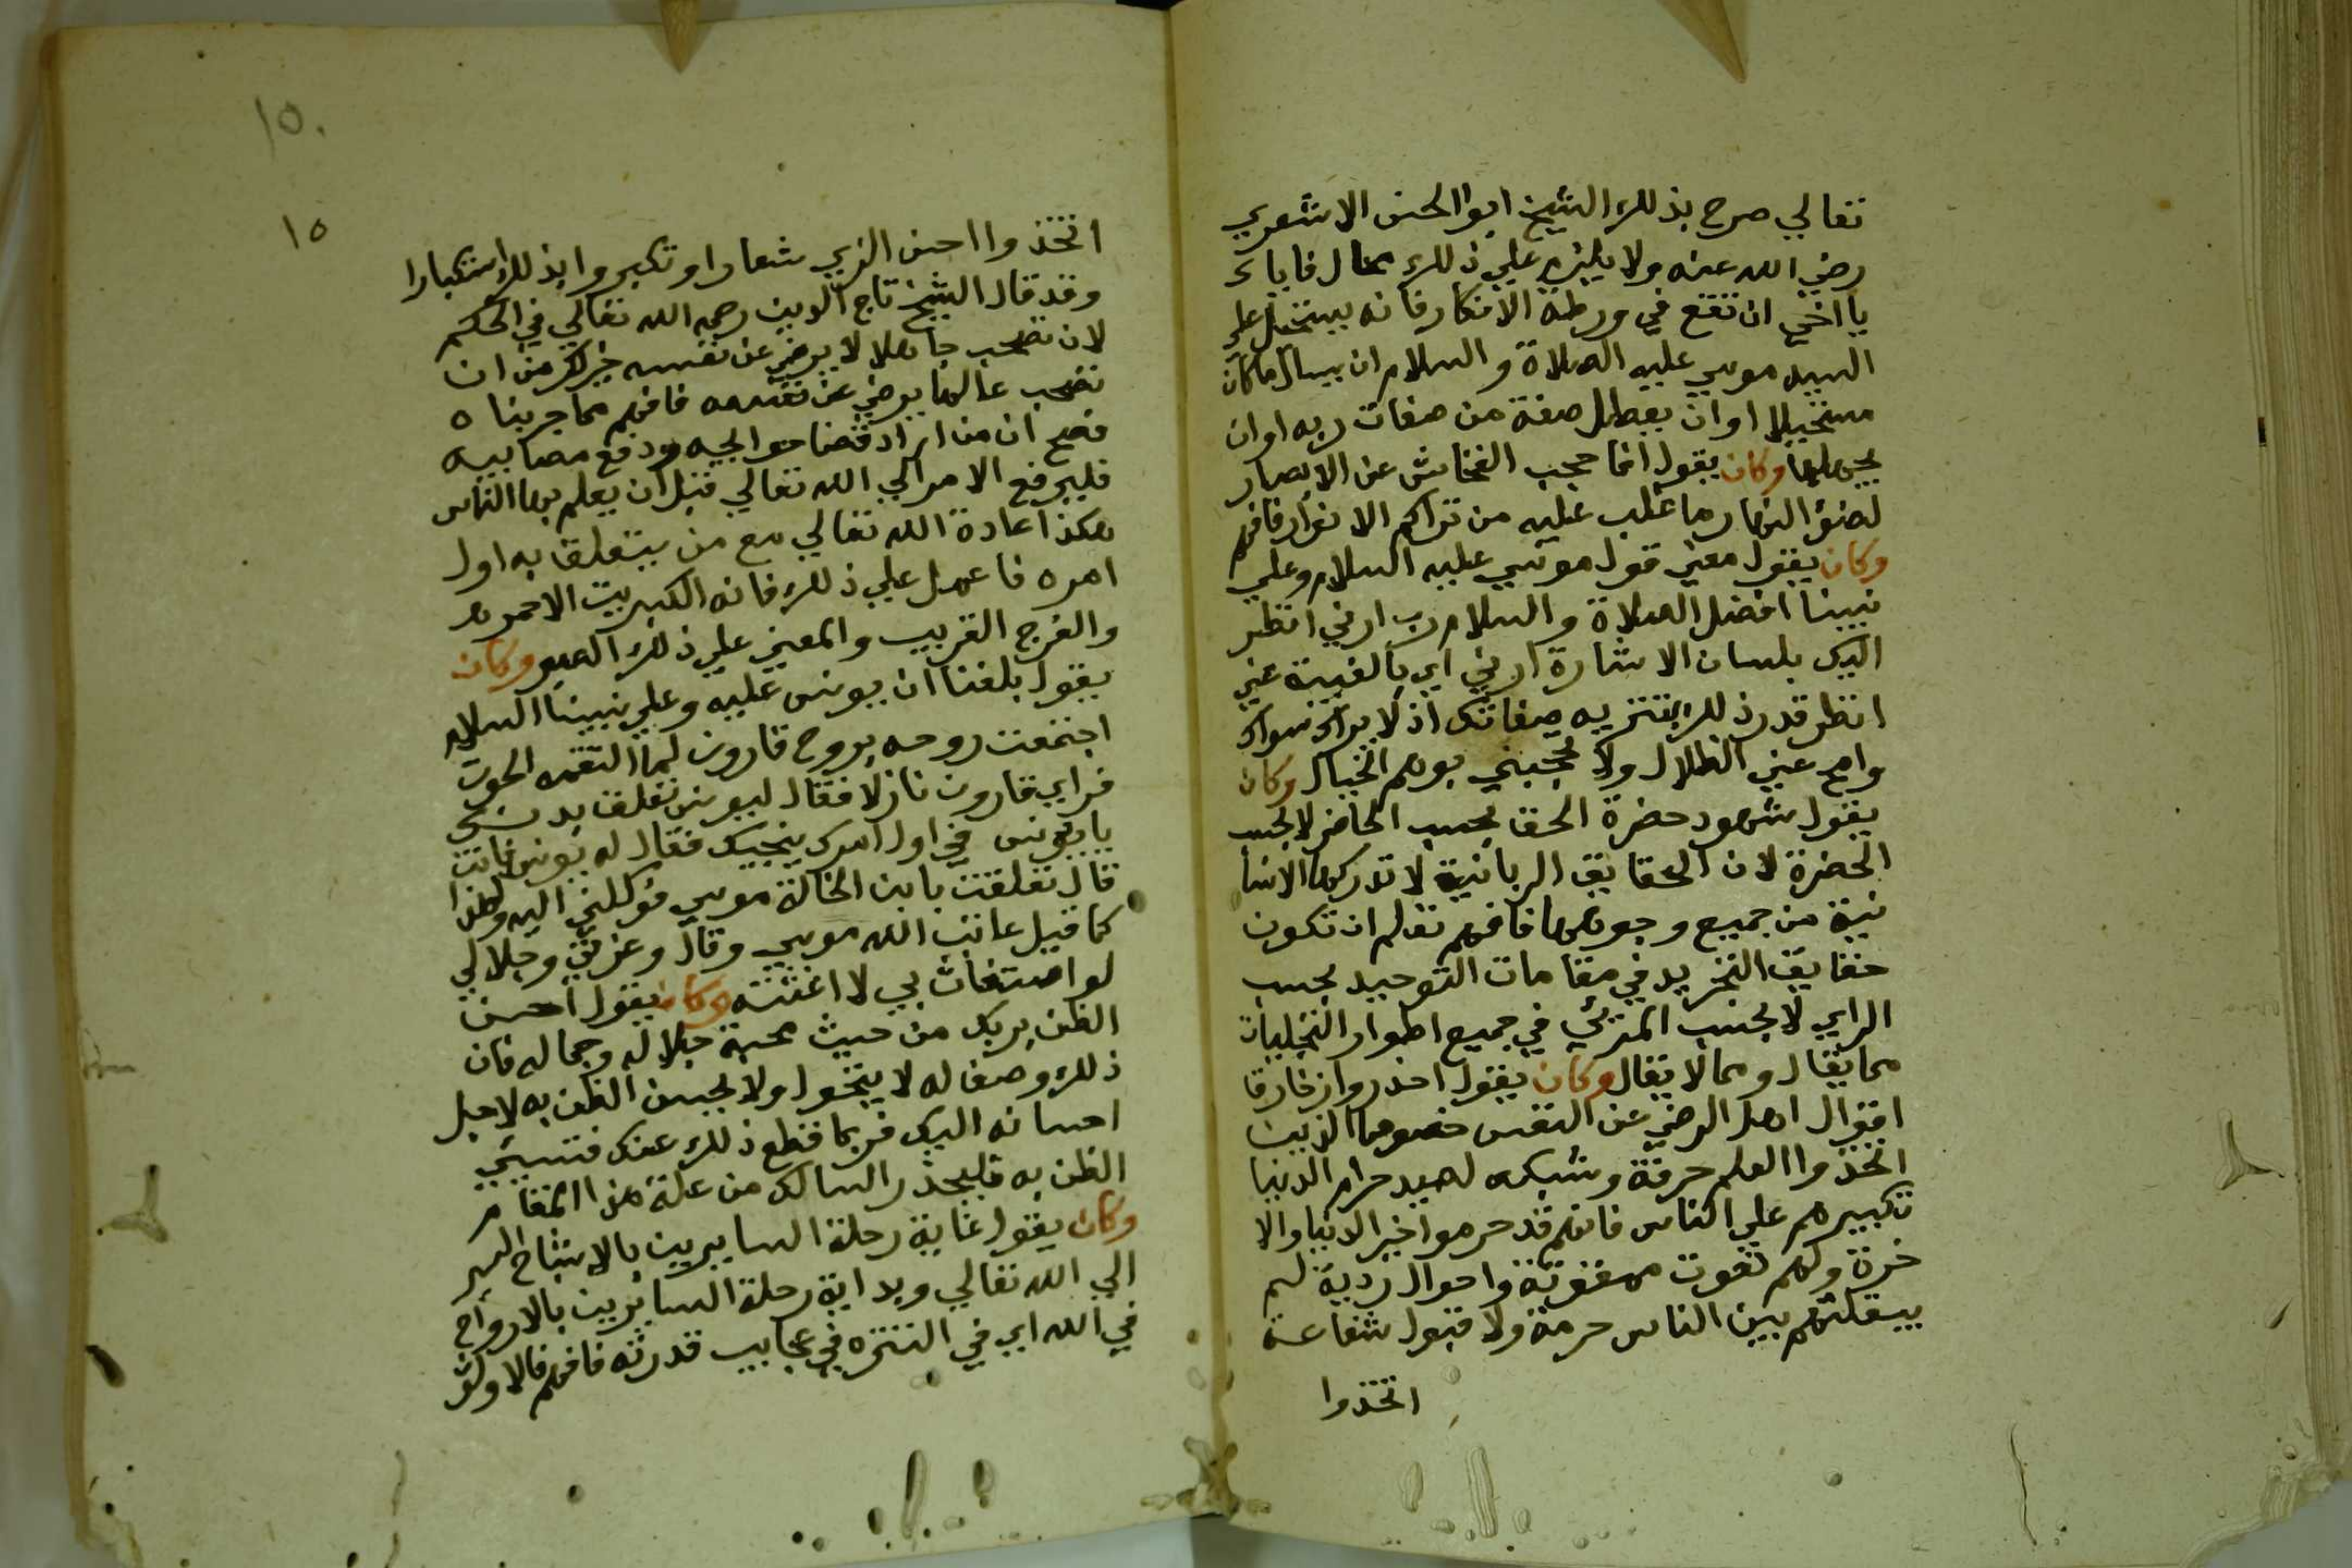 تعالي صرح بذلك الشيخ ابوا الحسن الاشعري
رضي الله عنه ولا يلزم علي ذلك محال فاياك
يا اخي ان تقع في ورطة الانكار فانه يستحيل علي
السيد موسي عليه الصلاة والسلام ان يسال ماكان
مستحيلا او ان يعطل صفة من صفات ربه او ان
يجهلها وكان يقول انما حجب الخفاش عن الابصار
لضوء النهار ما غلب عليه من تراكم الانوار فافهم
وكان يقول معني قول موسي عليه السلام وعلي
نبينا افضل الصلاة والسلام رب ارني انظر
اليك بلسان الاشارة ارني اي بالغيبة عني
انظر قدر ذلك بتنزيه صفاتك اذ لا يراك سواك
وامح عني الظلال ولا تحجبني بوهم الخيال وكان
يقول شهود حضرة الحق بحسب الحاضر لا بحسب
الحضرة لان الحقايق الربانية لا تدركها الانسا
نية من جميع وجوهها فافهم تعلم ان تكون
حقايق التجريد في مقامات التوحيد بحسب
الراي لا بحسب المرئي في جميع اطوار التجليات
مما يقال ومما لا يقال وكان يقول احذروا زخارفا
اقوال اهل الرضي عن النفس خصوصا الذين
اتخذوا العلم حرفة وشبكه لصيد حرام الدنيا
تكبيرهم علي الناس فانهم قد حرموا خير الدنيا والا
خرة ولهم نعوت ممقوتة واحوال ردية لم
يبقلهم بين الناس حرمة ولا قبول شفاعة
اتخذوا
١٥٠
١٥
اتخذوا احسن الزي شعارا وتكبروا بذلك استكبارا
وقد قال الشيخ تاج الدين رحمه الله تعالي في الحكم
لان تصحب جاهلا لا يرضي عن نفسه خير لك من ان
تصحب عالما يرضي عن نفسه فافهم مما جربناه
فصح ان من اراد قضا حوايجه ودفع مصايبه
فليرفع الامر الي الله تعالي قبل ان يعلم بها الناس
هكذا عادة الله تعالي مع من يتعلق به اول
امره فاعمل علي ذلك فانه الكبريت الاحمر
والفرج القريب والمعين علي ذلك الصبر وكان
يقول بلغنا ان يونس عليه وعلي نبينا السلام
اجتمعت روحه بروح قارون لما التقمه الحوت
فراي قارون نازلا فقال ليونس تعلق به
يا يونس في اول امرك ينجيك فقال له يونس فانت
قال تعلقت بابن الخالة موسي فوكلني اليه ولهذا
كما قيل عاتب الله موسي وقال وعزتي وجلالي
لو استغاث بي لا اغثته وكان يقول احسن
الظن بربك من حيث محبة جلاله وجماله فان
ذلك وصفا له لا يتحول ولا تحسن الظن به لاجل
احسانه اليك فربما قطع ذلك عنك فتسيئ
الظن به فليحذر السالك من علة هذا المقام
وكان يقول غاية رحلة السايرين بالاشباح السير
الي الله تعالي وبداية رحلة السايرين بالارواح
في الله اي في التنزه في عجايب قدرته فافهم فالاولو